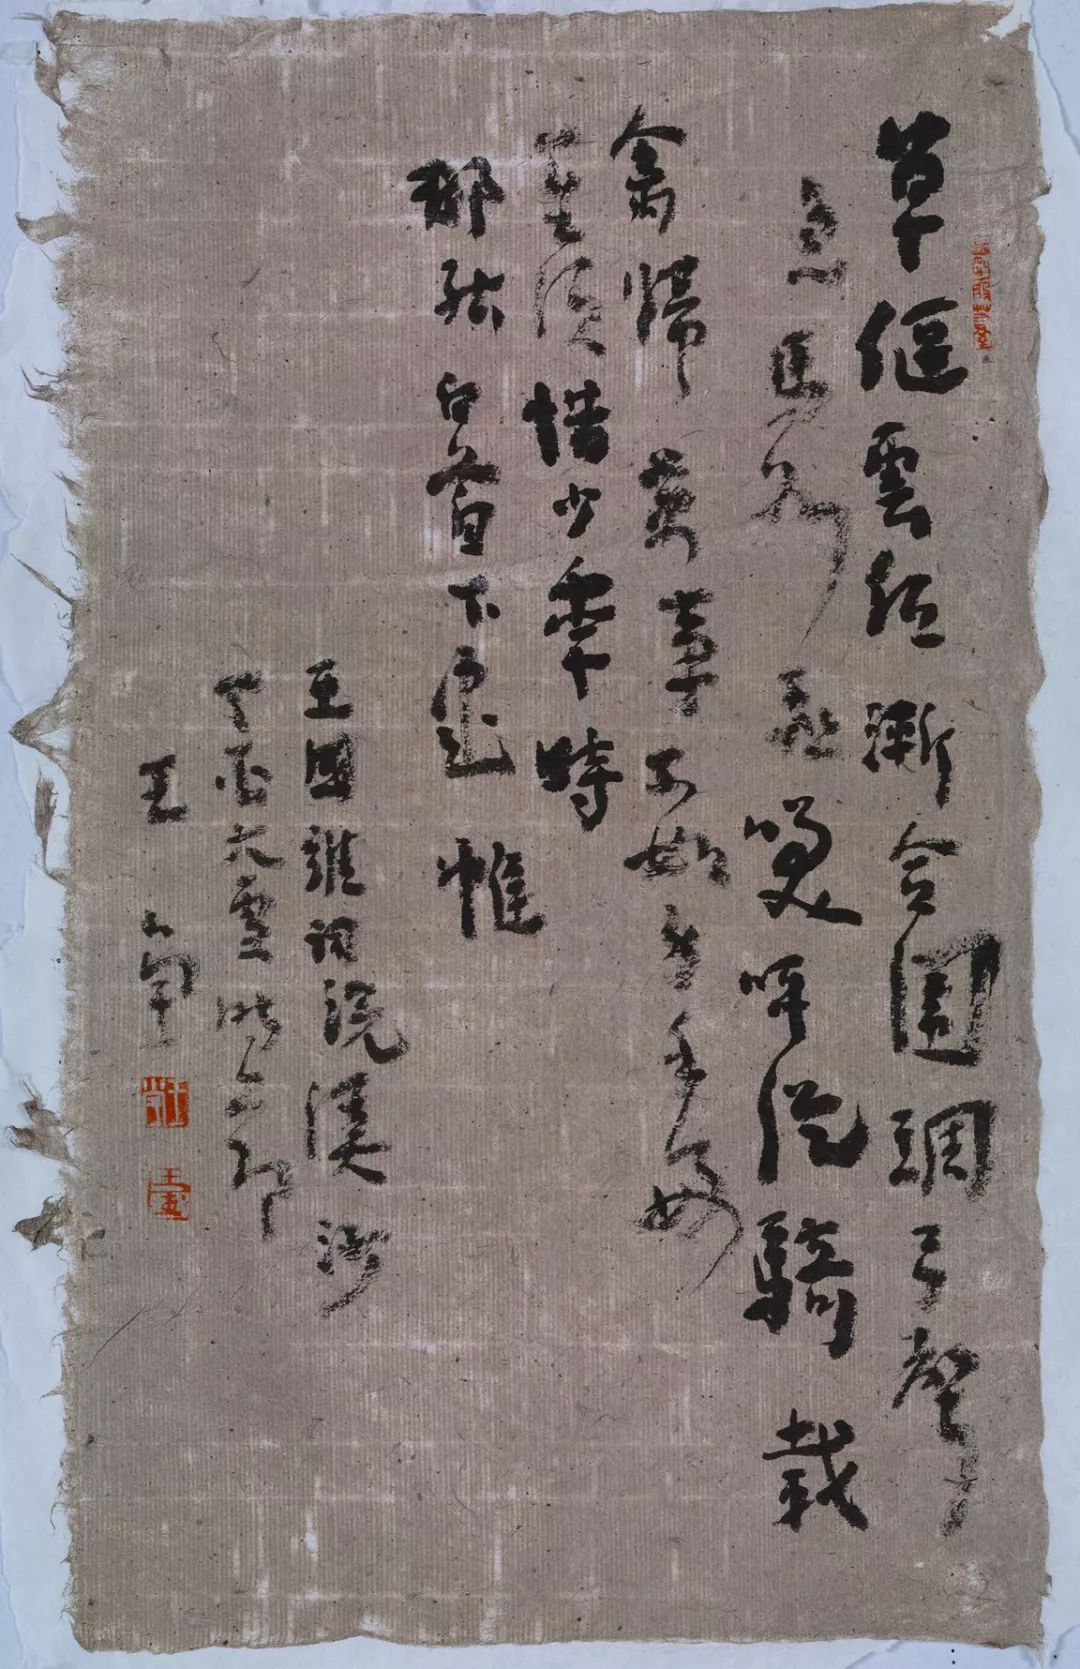 草偃雲低漸合圍琱弓聲
急馬如飛笑呼從騎載
禽歸萬事不如身手好
一生須惜少年時
那能白首下書帷
王國維詞浣溪沙
丁酉大雪時節
王